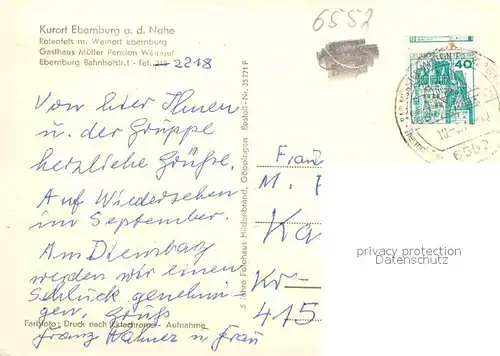 6552
Kurort Ebernburg a. d. Nahe
Rotenfels m. Weinort Ebernburg
Gasthaus Müller Pension Weingut
Ebernburg Bahnhofstr.1 - Tel. 2218
40
Von hier Ihnen
u. der Gruppe
herzliche Grüße.
Auf Wiedersehen
im September.
Am Dienstag
werden wir einen
Schluck genehmi-
gen. Gruß
Franz u Frau
Farbfoto: Druck nach Ektachrome - Aufnahme
Jahre Fotohaus Hildenbrand, Göppingen Bestell-Nr. 35771 F
Frau
M.
Ka
Kr-
415
privacy protection
Datenschutz